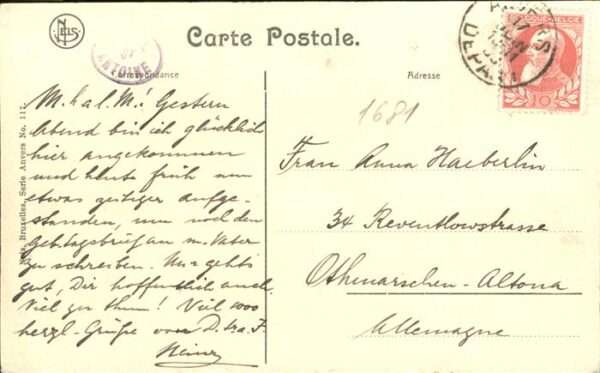 NELS
Carte Postale.
ANTOINE
Correspondance
Adresse
ANVERS
DEPART
BELGIQUE
10
1681
M. h. a. l. M.! Gestern
Abend bin ich glücklich
hier angekommen
und heute früh nun
etwas zeitiger aufge-
standen, um noch den
Gebtagsbrief an m. Vater
zu schreiben. Uns gehts
gut, Dir hoffentlich auch.
Viel zu thun! Viel 1000
herzl. Grüße von D. tr. F.
Heinz
Frau Anna Haeberlin
34 Reventlowstrasse
Othmarschen-Altona
Allemagne
Nels, Bruxelles, Serie Anvers No.